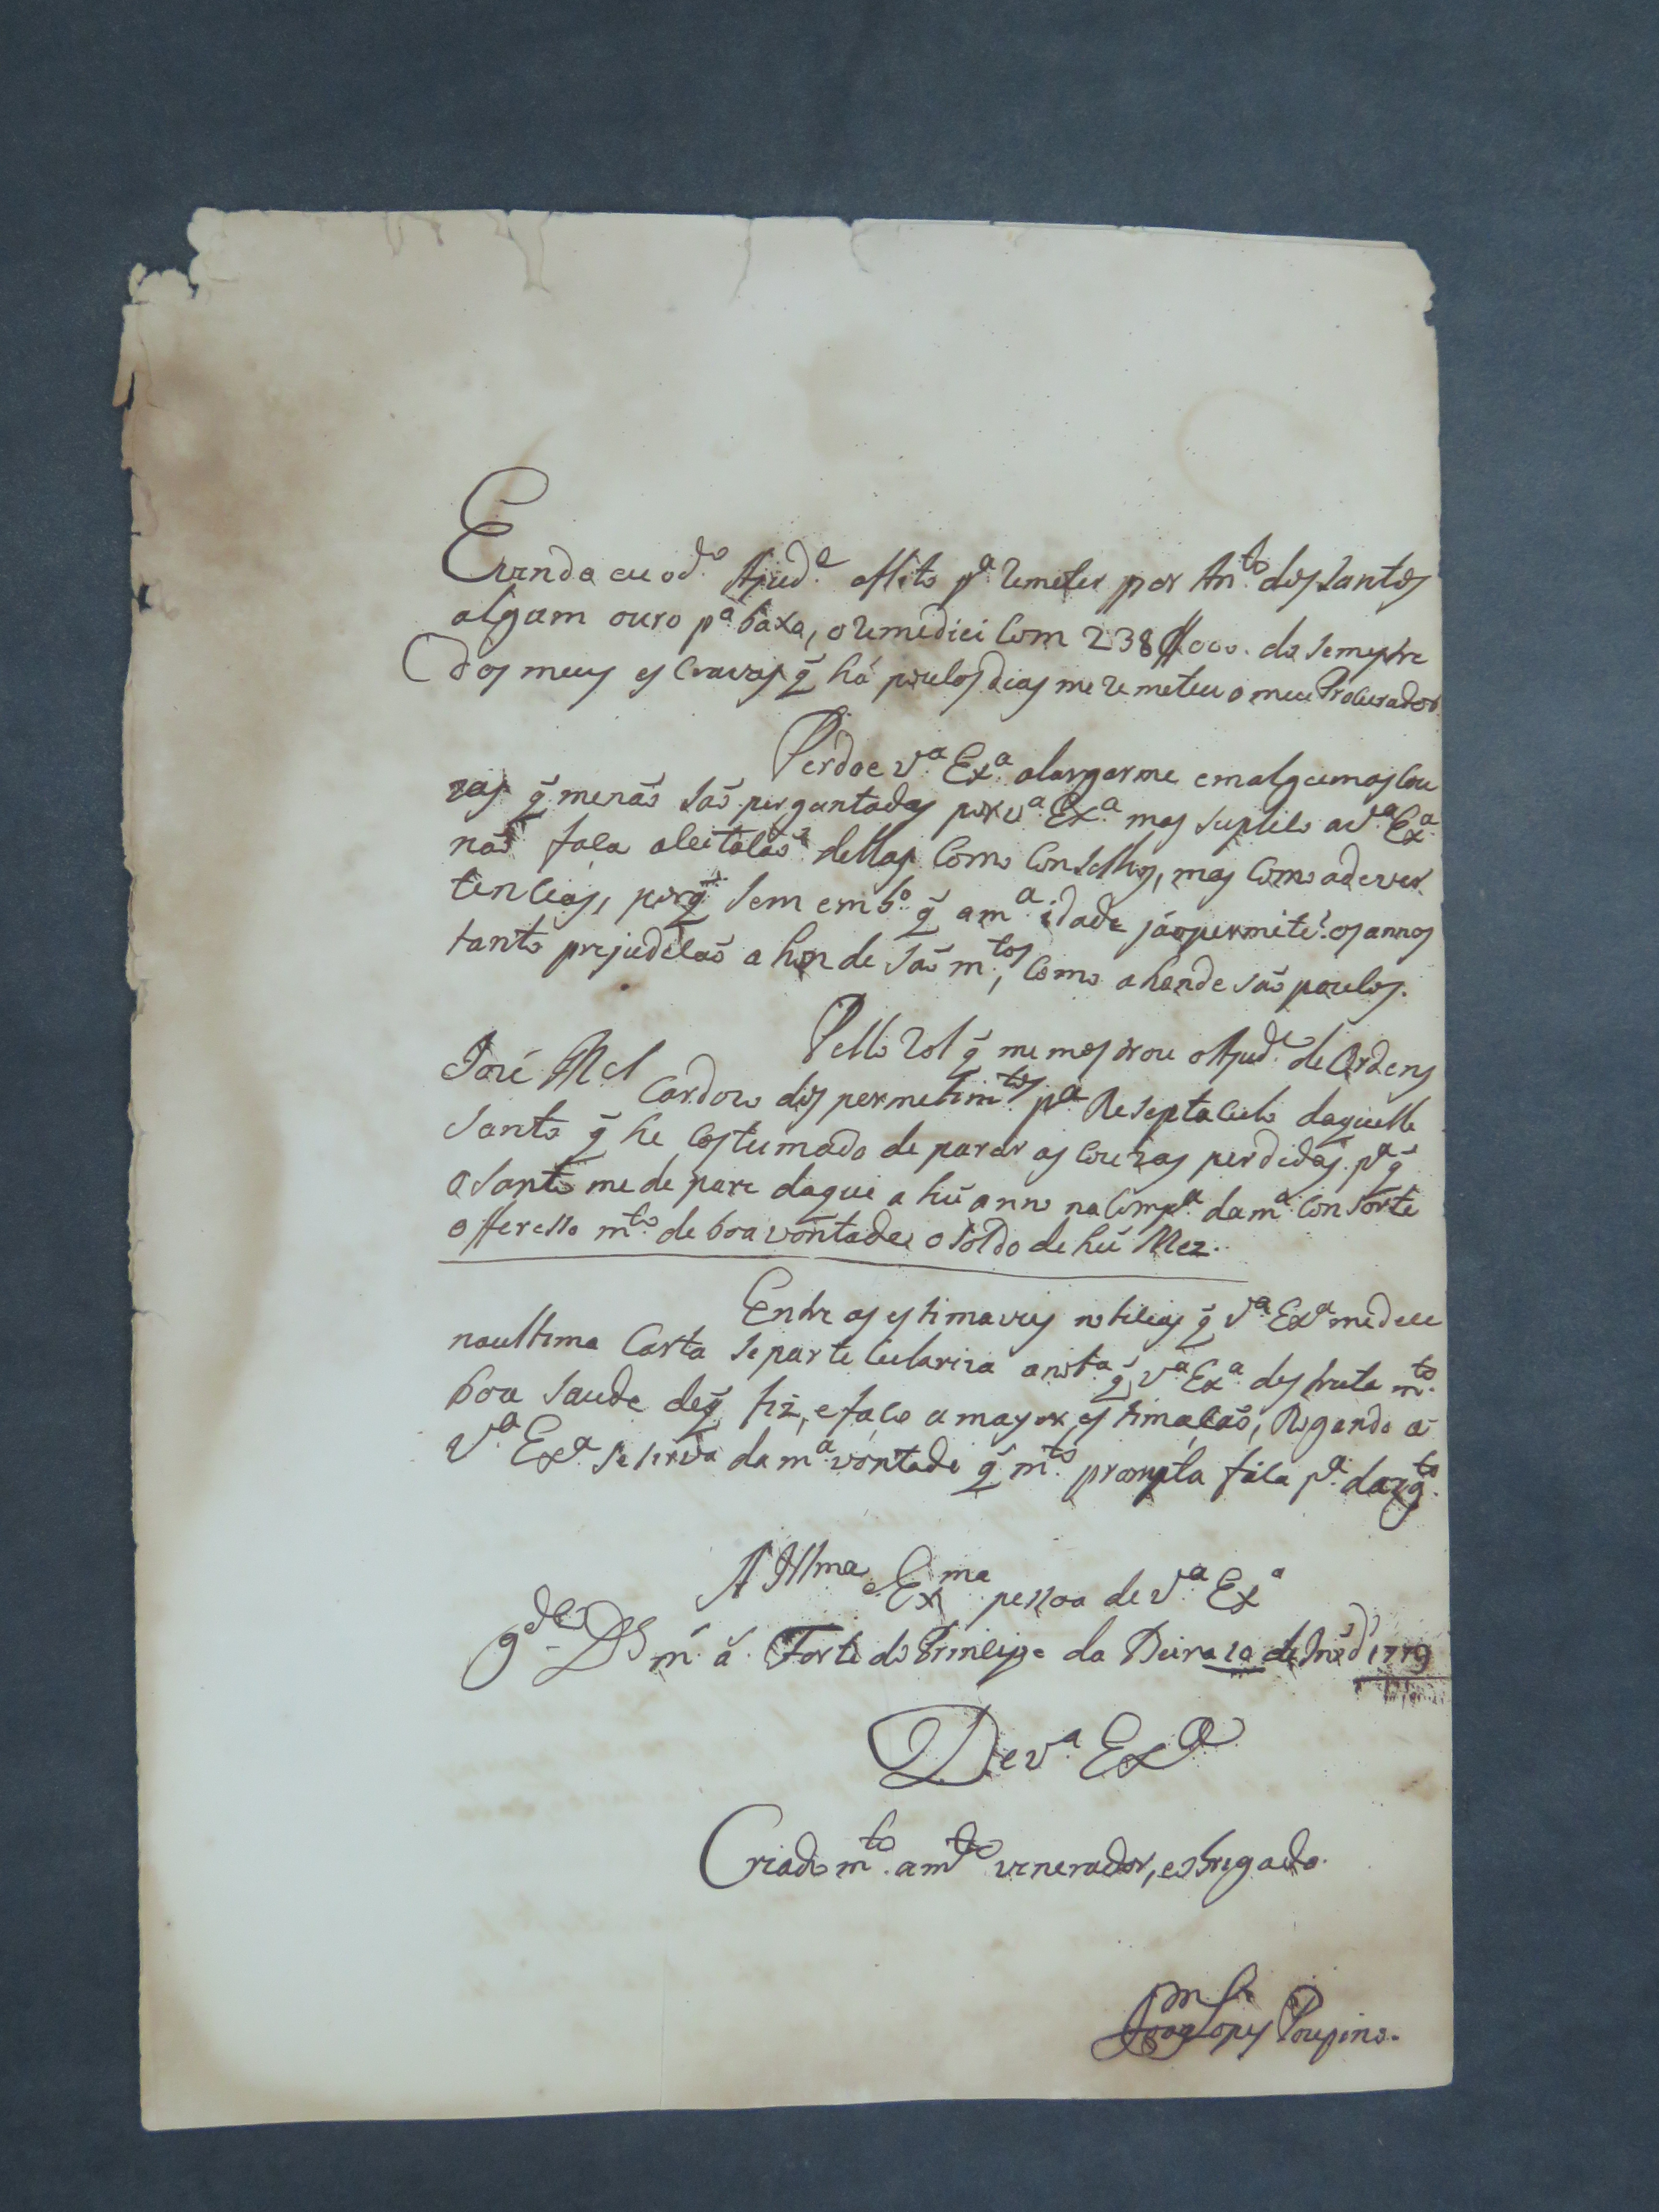 Evendo eu o d.º Ajud.e aflito p.ª remeter por An.to dos Santos
algum ouro p.ª baxa, o remediei com 238$000. do semestre
dos meus escravos q̃ há poucos dias me remeteu o meu Procurador
Perdoe V.ª Ex.ª alargarme em algumas cou
zas q̃ me não são perguntadas por V.ª Ex.ª mas suplico a V.ª Ex.ª
não faça aceitação dellas como conselhos, mas como adever
tencias, porq̃ sem emb.º q̃ a m.ª idade já o permite, os annos
tanto prejudicão a honde são m.tos, como a honde são poucos.
Pello rol q̃ me mostrou o Ajud.e de Ordens
José M.el Cardozo dos permetim.tos p.ª Reseptaculo daquelle
Santo q̃ he costumado de parar as couzas perdidas. p.ª q̃
o Santo me depare daqui a hũ anno na comp.ª da m.ª consorte
offeresso m.to de boa vontade o soldo de hũ Mez.
Entre as estimaveis noticias q̃ V.ª Ex.ª me deu
na ultima Carta se particulariza a not.ª q̃ V.ª Ex.ª desfruta m.to
boa saude de q̃ fiz, e faço a mayor estimação, Rogando a
V.ª Ex.ª se sirva da m.ª vontade q̃ m.to prompta fica p.ª dar g.to
A Illma e Exma pessoa de V.ª Ex.ª
g.de D.s m.s a.s Forte do Principe da Beira 10 de de 1779
De V.ª Ex.ª
Criado m.to am.te venerador, e obrigado.
Lopes Poupino.